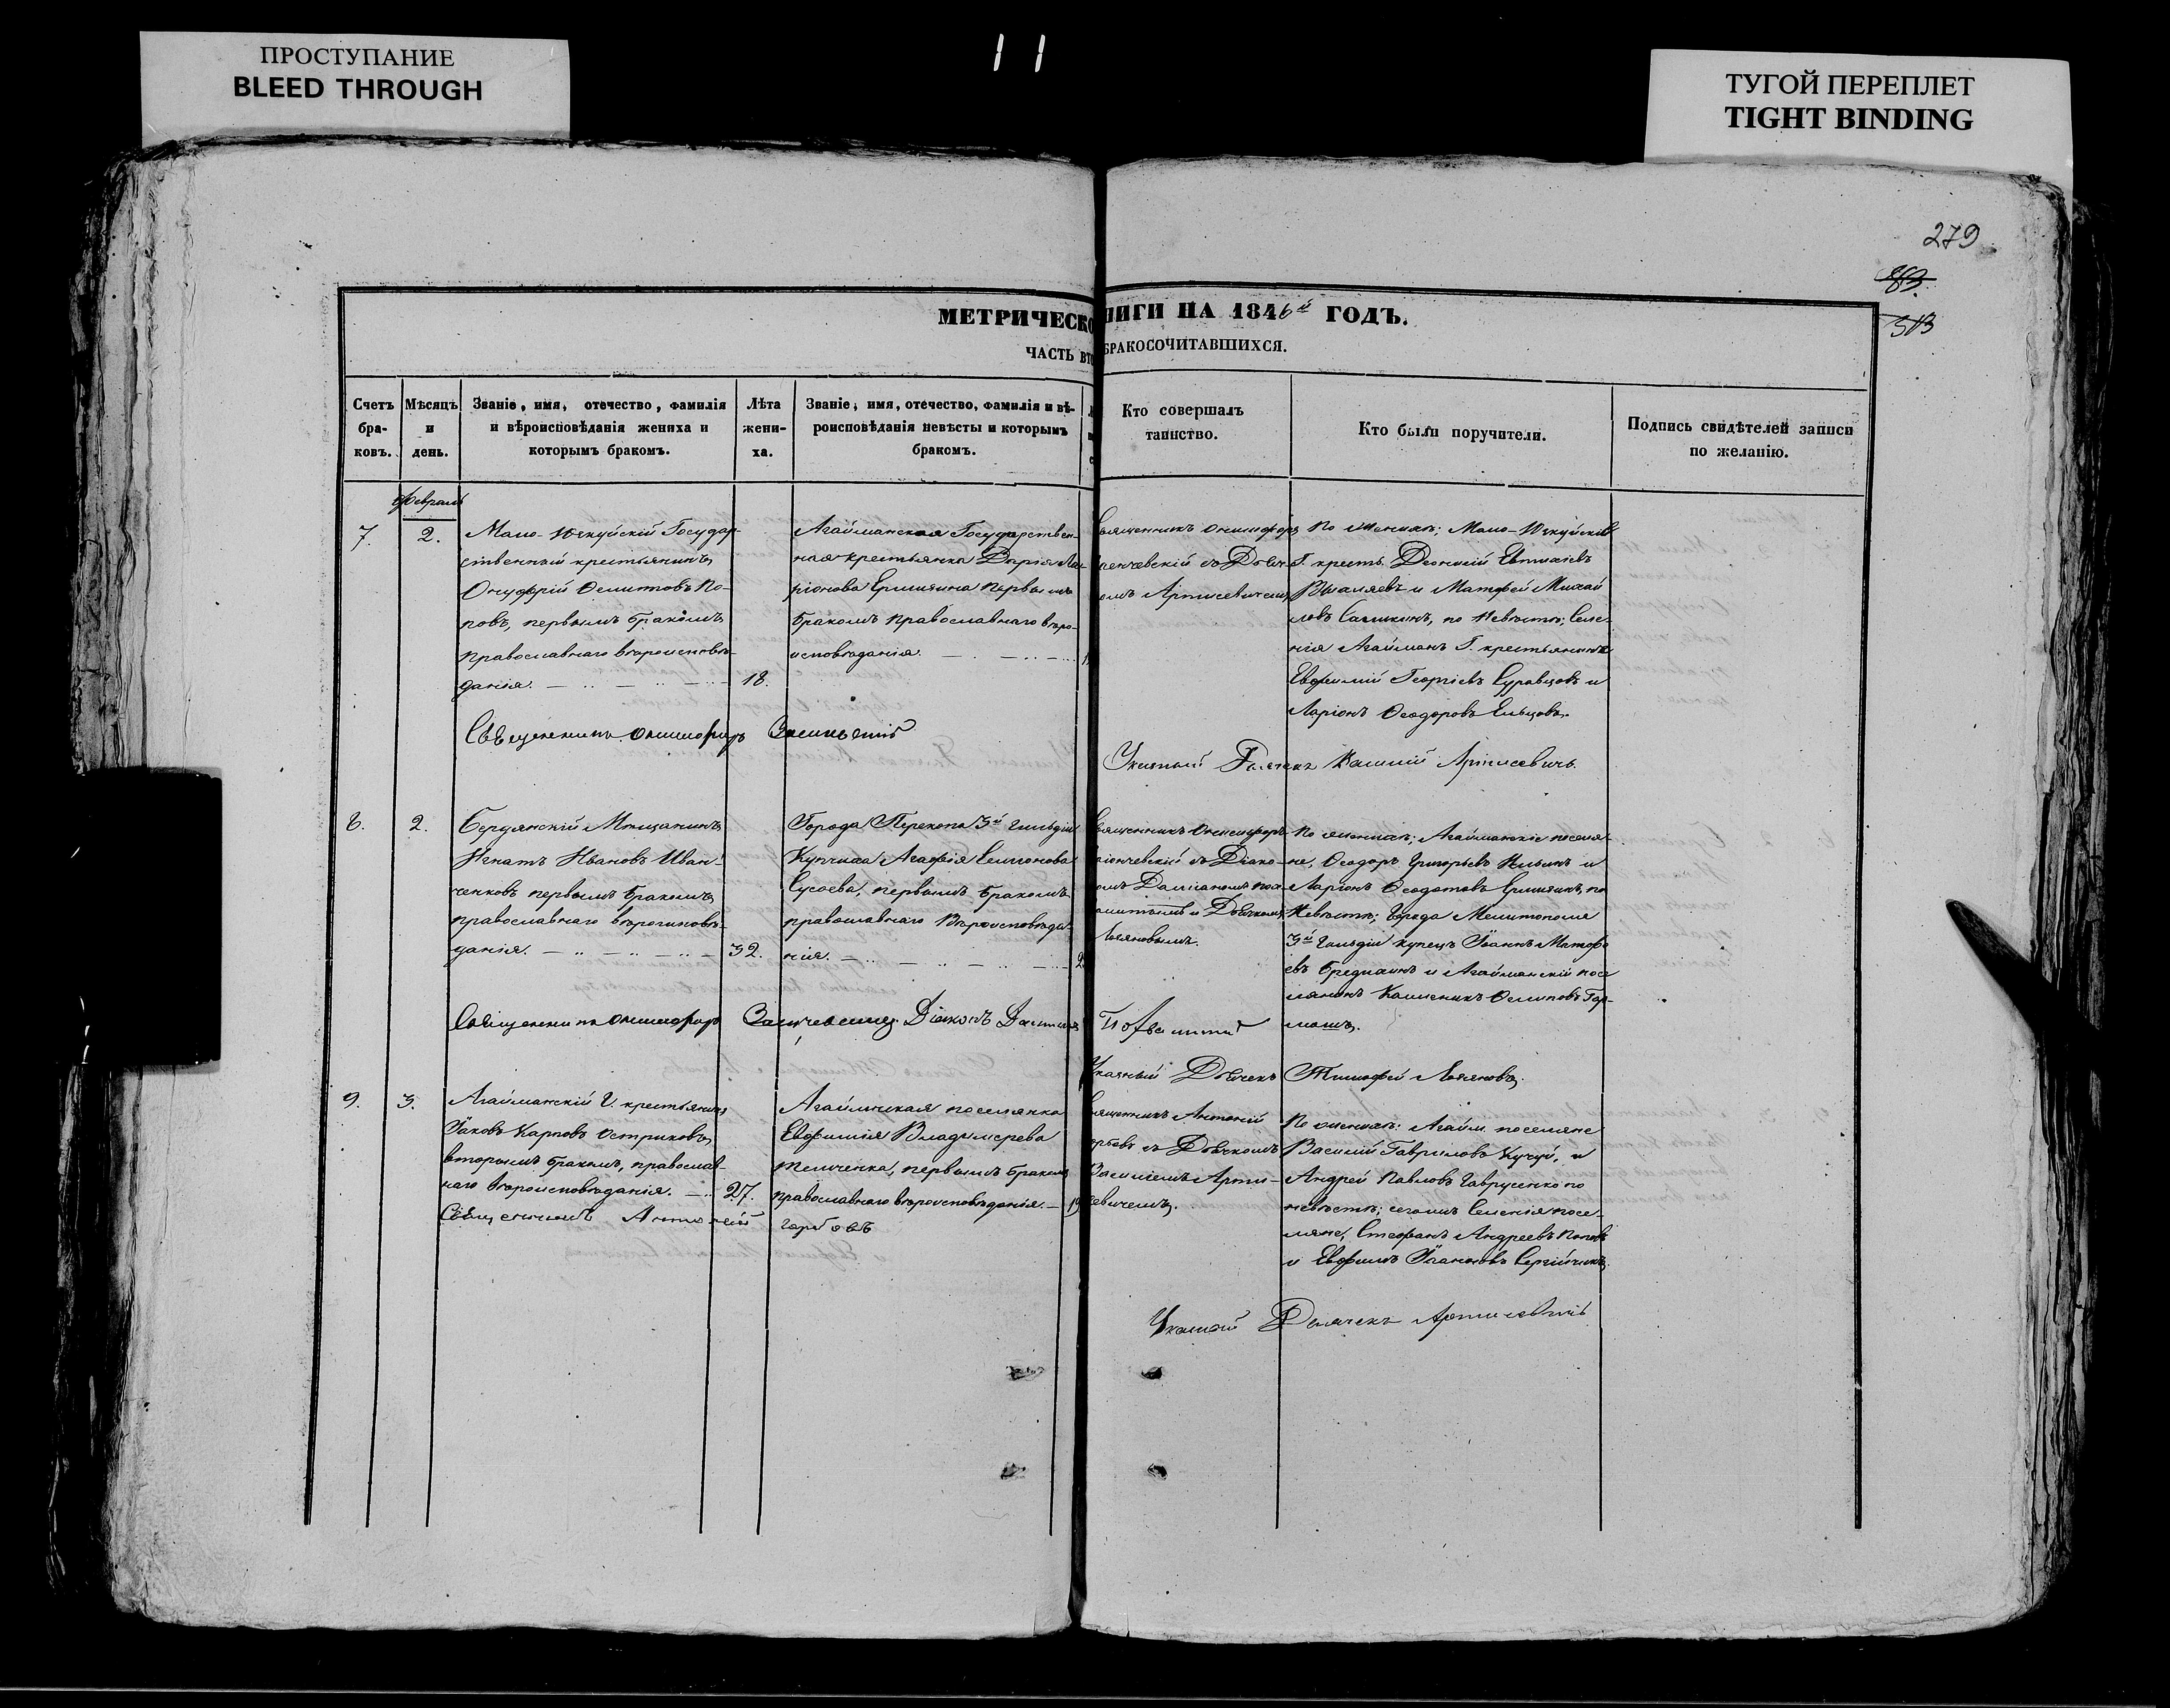 ПРОСТУПАНИЕ
BLEED THROUGH
11
ТУГОЙ ПЕРЕПЛЕТ
TIGHT BINDING
279
513
МЕТРИЧЕСКО НИГИ НА 1846й ГОДЪ.
ЧАСТЬ ВТО БРАКОСОЧИТАВШИХСЯ.
Счетъ
бра-
ковъ.
Мѣсяцъ
и
день.
Званіе, имя, отечество, фамилія
и вѣроисповѣданія жениха и
которымъ бракомъ.
Лѣта
жени-
ха.
Званіе, имя, отечество, фамилія и вѣ-
роисповѣданія невѣсты и которымъ
бракомъ.
Кто совершалъ
таинство.
Кто были поручители.
Подпись свидѣтелей записи
по желанію.
Февраль
7.
2.
Мало- Государ-
ственный крестьянинъ
Онуфрій По-
повъ, первымъ бракомъ
православнаго вѣроисповѣ-
данія.
18.
Агайманская Государствен-
ная крестьянка Дарія Ла-
ріонова Ермизина первымъ
бракомъ православнаго вѣро-
исповѣданія.
вященникъ Онисифоръ
съ Дьяч-
омъ Артисевичемъ
По женихѣ; Мало-
Г. кресть. Леонтій
и Матфей Михай
ловъ по Невѣстѣ; Селе-
нія Агайманъ Г. крестьянинъ
Евфимій Георгіевъ Суравцовъ и
Ларіонъ Ѳеодоровъ Ельцовъ.
Священникъ Онисифоръ
Указный Дьячекъ Василій Артисевичъ.
8.
2.
Бердянскій Мѣщанинъ
Игнатъ Ивановъ Иван-
ченковъ первымъ бракомъ
православнаго вѣроисповѣ-
данія.
32.
Города Перекопа 3й гильдіи
Купчиха Агафія Семионова
Сусоева, первымъ бракомъ
православнаго Вѣроисповѣда-
нія.
2
вященникъ Онисифоръ
съ Діако-
омъ Даміаномъ
и Дьячкомъ
По женихѣ; Агайманскіе поселя-
не, Ѳеодоръ Григорьевъ Ильинъ и
Ларіонъ Ѳеодотовъ Ермизинъ, по
Невѣстѣ; Города Мелитополя
3й Гильдіи купецъ Іоаннъ Матфе
евъ и Агайманскій посе
лянинъ Осиповъ Гор-
Священникъ Онисифоръ
Діаконъ Даміанъ
Указный Дьячекъ Тимофей
9.
3.
Агайманскій Г. крестьянинъ
Іаковъ Карповъ Остриковъ
вторымъ бракомъ, православ-
наго вѣроисповѣданія.
27.
Агайманская поселянка
Евфимія Владимерева
первымъ бракомъ
православнаго вѣроисповѣданія.
19
вященникъ Антоній
орбовъ съ Дьячкомъ
Василіемъ Арти-
севичемъ.
По женихѣ: Агайм. поселяне
Василій Гавриловъ Кучуй, и
Андрей Павловъ Гаврусенко по
невѣстѣ; сегожъ Селенія посе-
ляне, Стефанъ Андреевъ Поповъ
и Евфимъ Іоанновъ Сергійчикъ
Священникъ Антоній Горбовъ
Указный Дьячекъ Артисевичъ